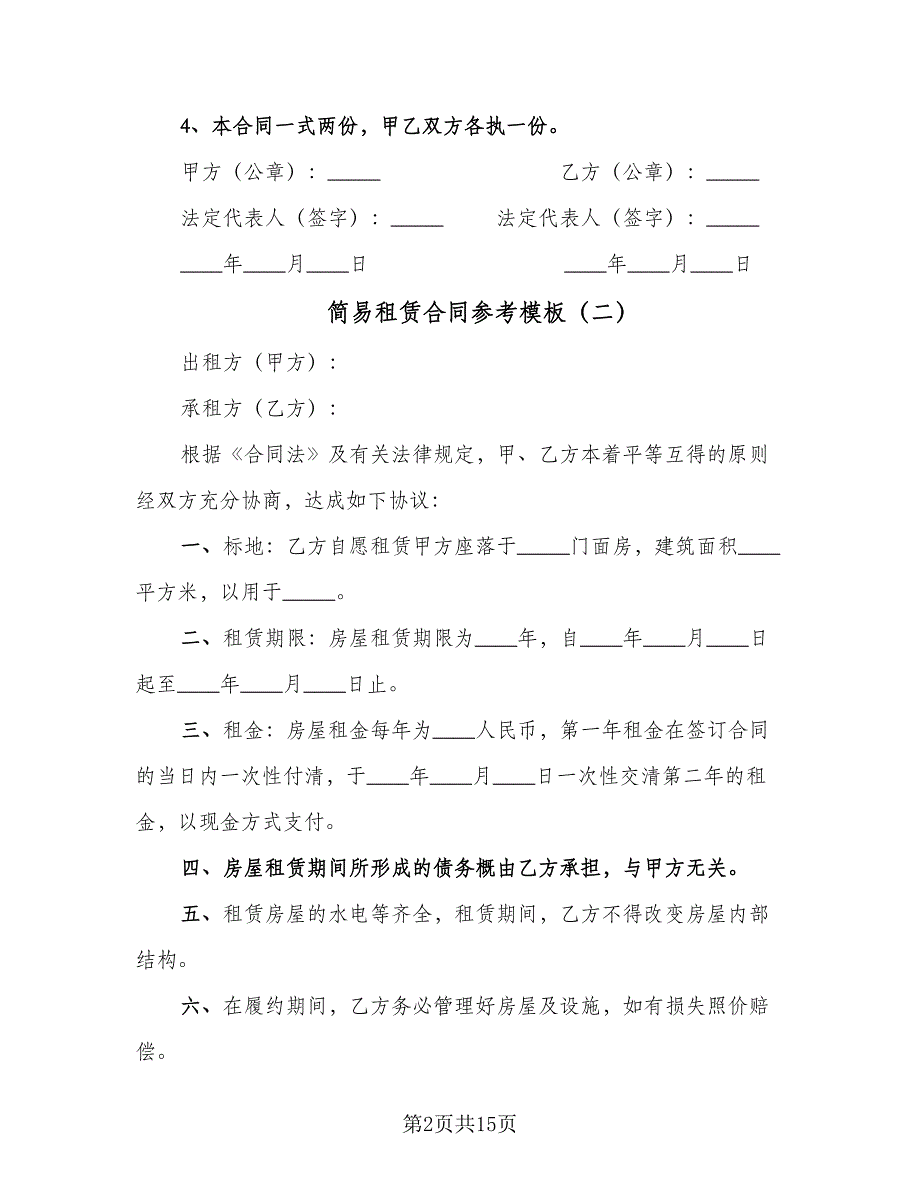 4、本合同一式两份，甲乙双方各执一份。
甲方（公章）：_____ 乙方（公章）：_____
法定代表人（签字）：_____ 法定代表人（签字）：_____
____年____月____日 ____年____月____日
简易租赁合同参考模板（二）
出租方（甲方）：
承租方（乙方）：
根据《合同法》及有关法律规定，甲、乙方本着平等互得的原则
经双方充分协商，达成如下协议：
一、标地：乙方自愿租赁甲方座落于_____门面房，建筑面积____
平方米，以用于_____。
二、租赁期限：房屋租赁期限为____年，自____年____月____日
起至____年____月____日止。
三、租金：房屋租金每年为____人民币，第一年租金在签订合同
的当日内一次性付清，于____年____月____日一次性交清第二年的租
金，以现金方式支付。
四、房屋租赁期间所形成的债务概由乙方承担，与甲方无关。
五、租赁房屋的水电等齐全，租赁期间，乙方不得改变房屋内部
结构。
六、在履约期间，乙方务必管理好房屋及设施，如有损失照价赔
偿。
第2页共15页